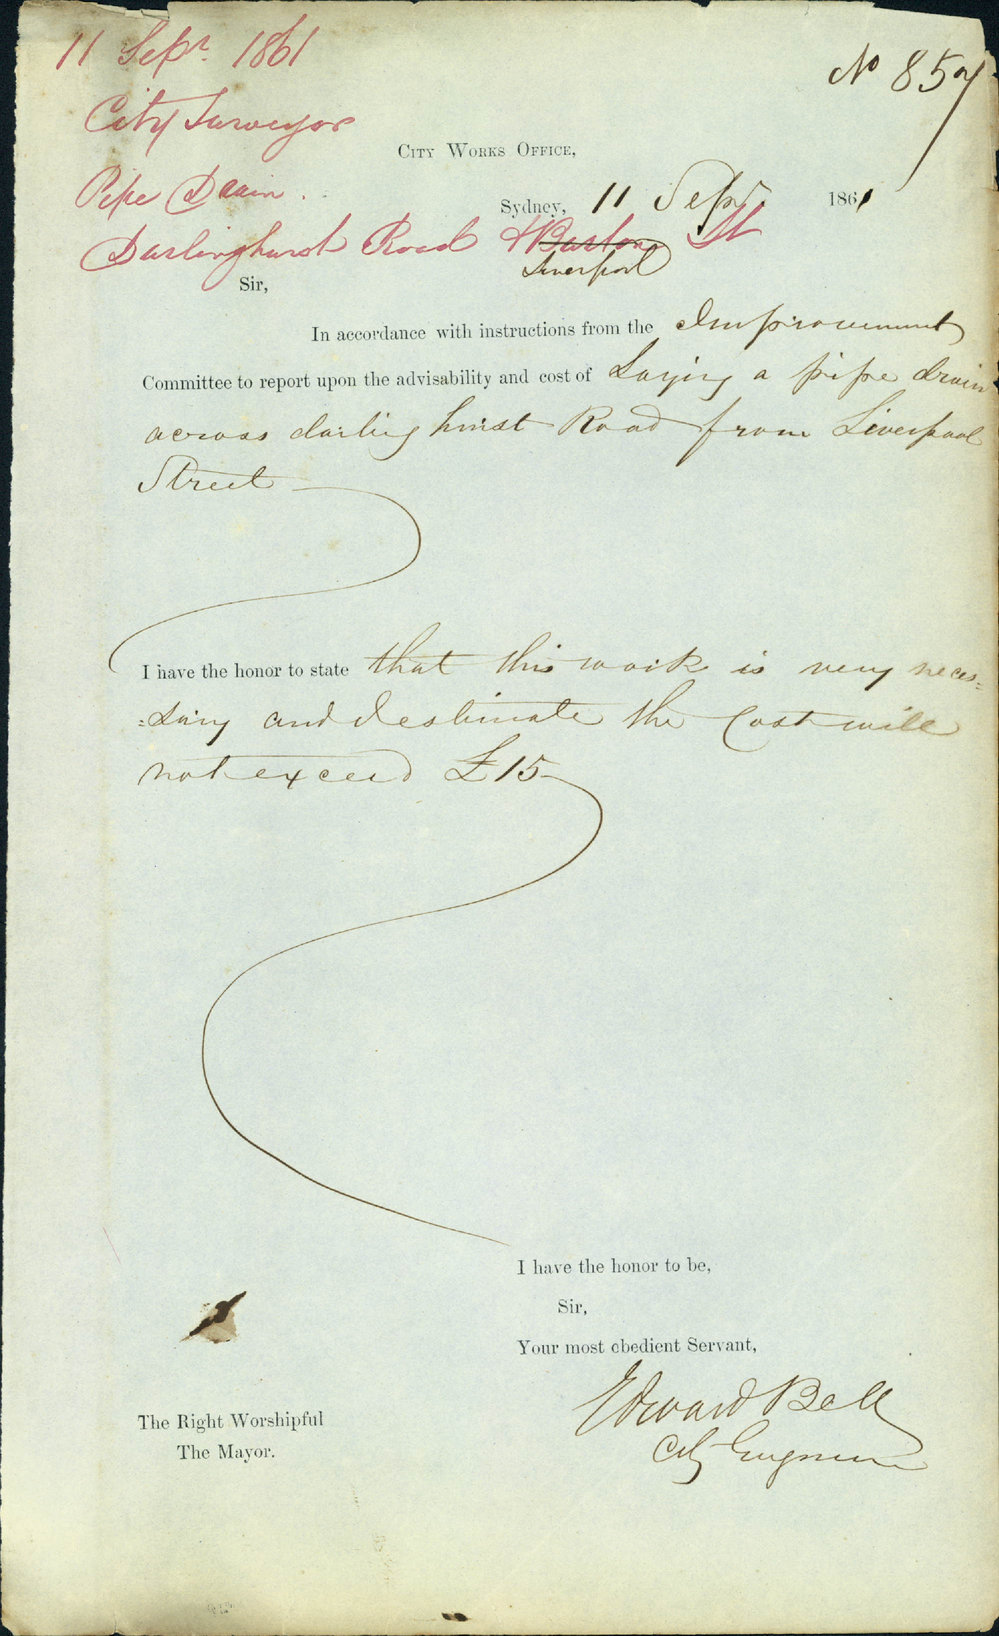 11 Sepr. 1861
No 857
City Surveyor
City Works Office,
Pipe Drain.
Sydney, 11 Sepr 1861
Darlinghurst Road & Burton St
Liverpool
Sir,
In accordance with instructions from the Improvement
Committee to report upon the advisability and cost of Laying a pipe drain
across darlinghurst Road from Liverpool
Street
I have the honor to state that this work is very neces=
=sary and I estimate the Cost will
not exceed £15
I have the honor to be,
Sir,
Your most obedient Servant,
Edward Bell
City Engineer
The Right Worshipful
The Mayor.